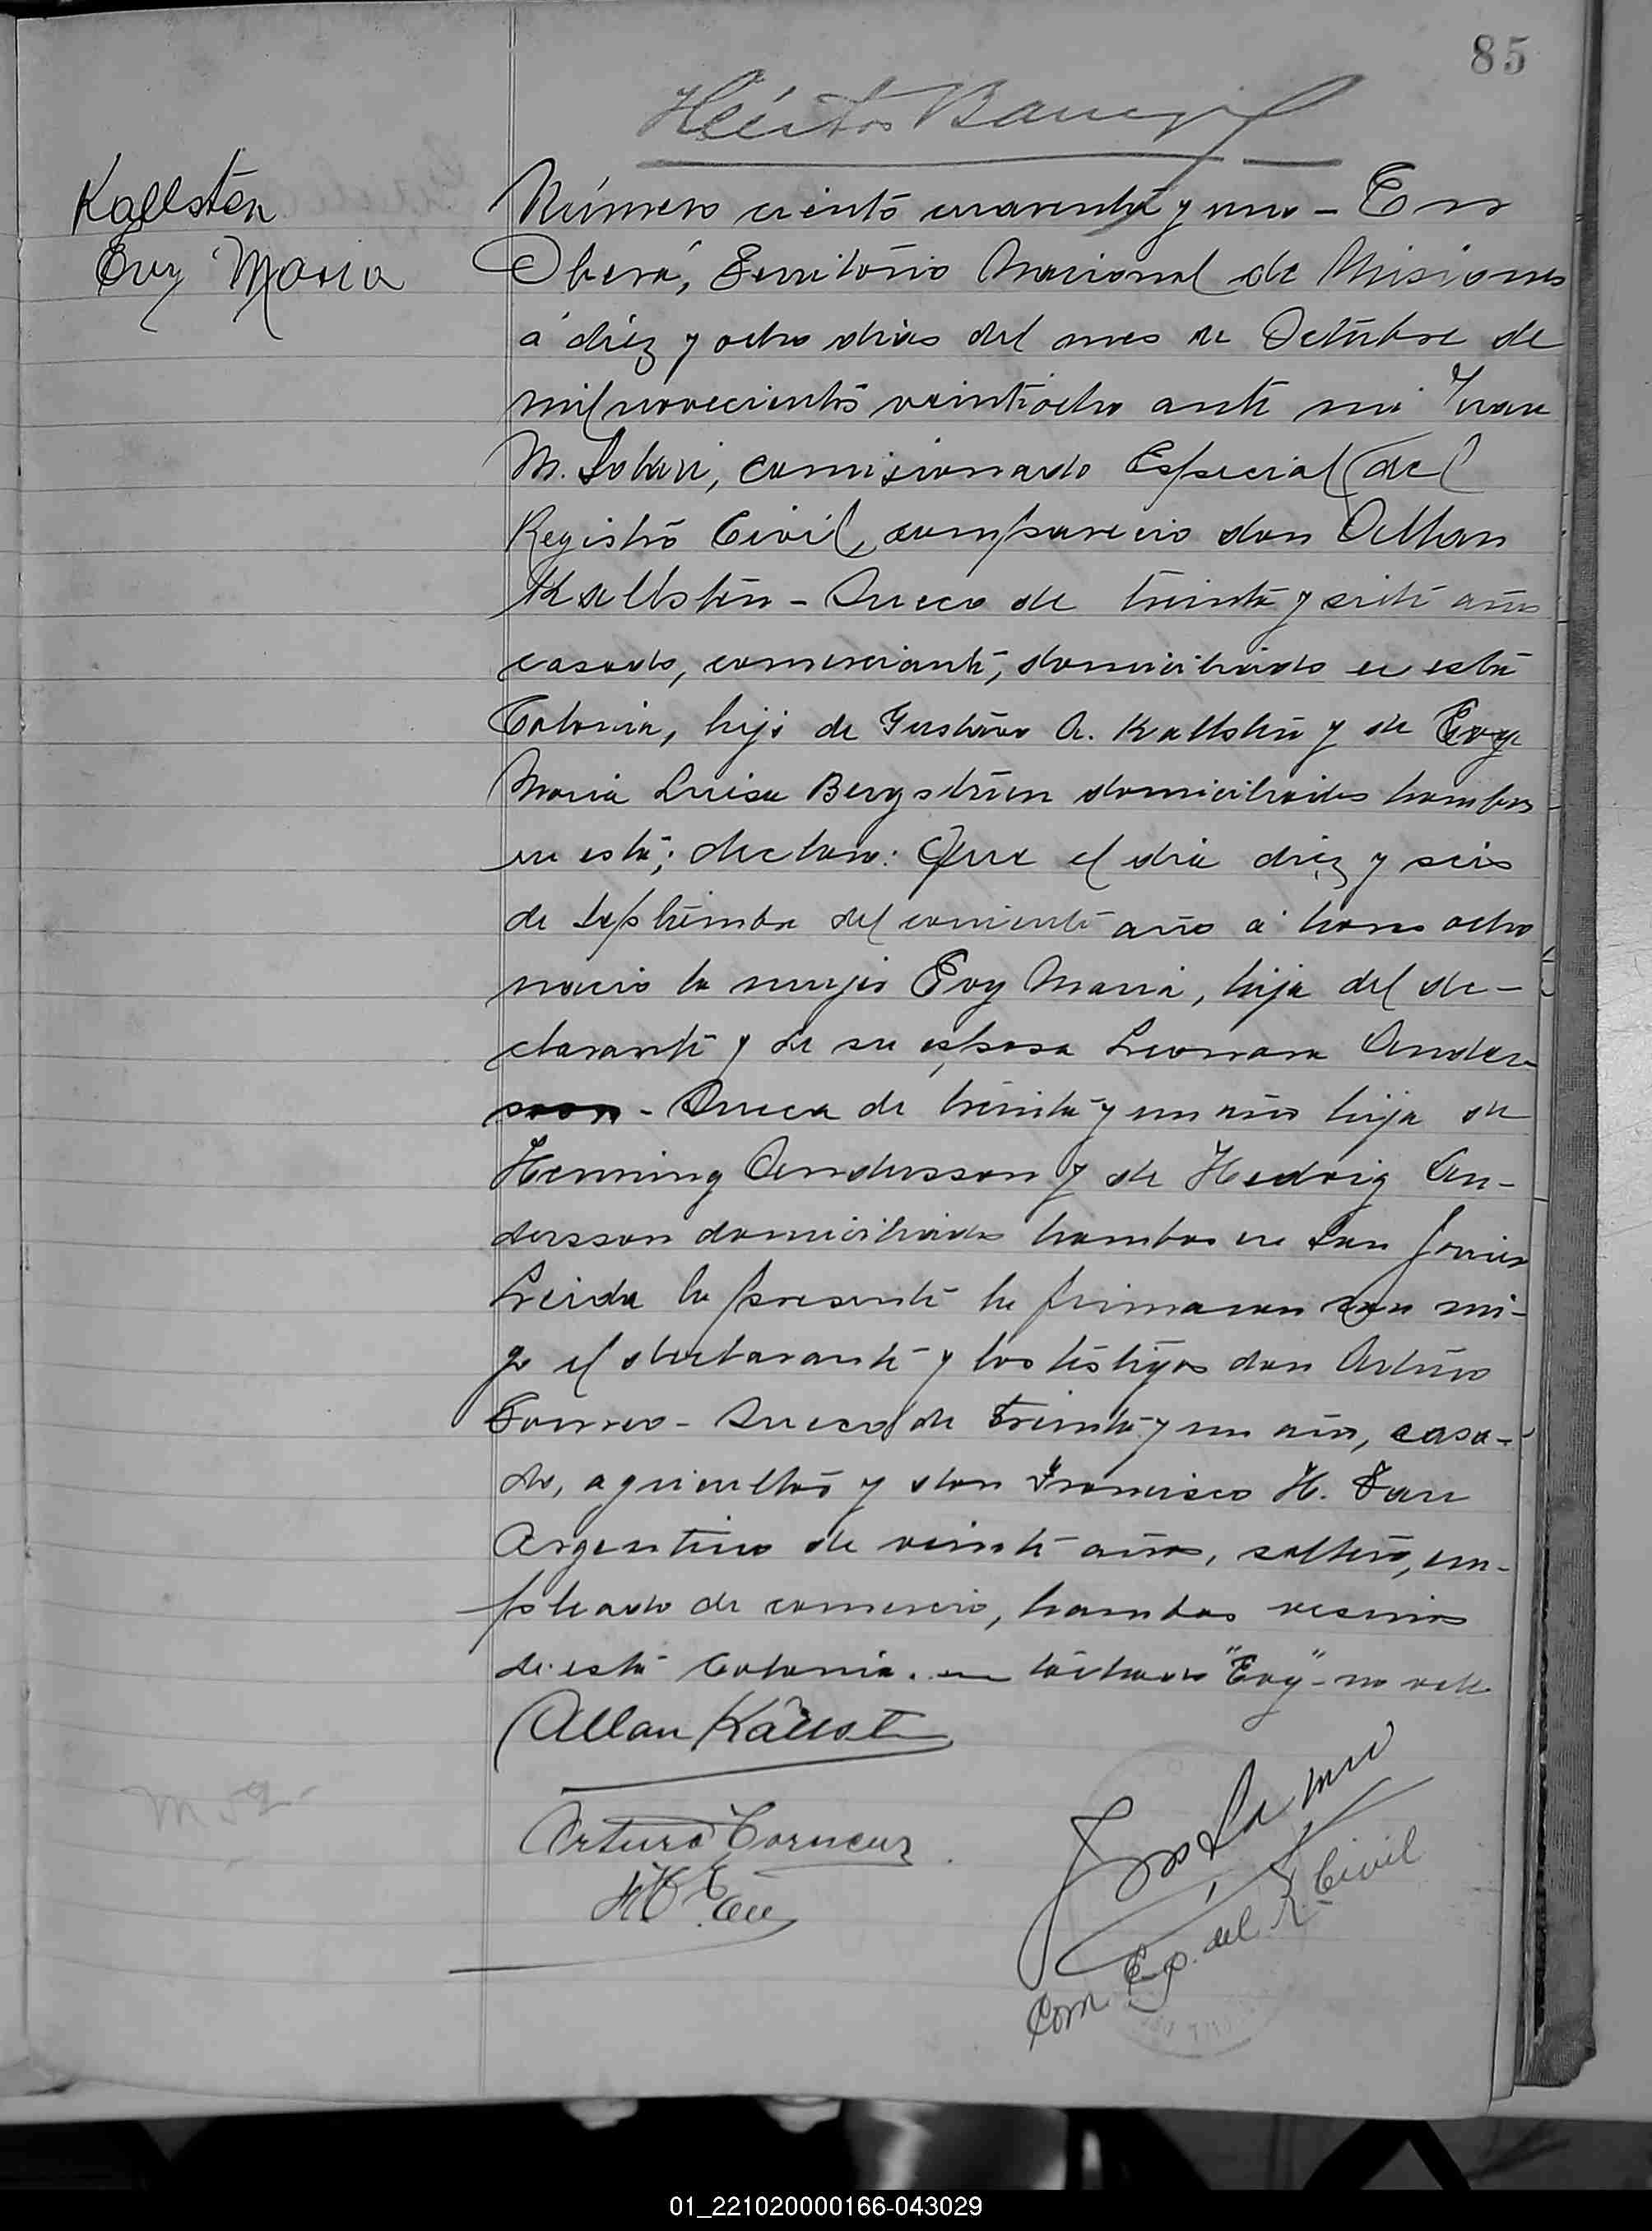 85
Héctor
Kallsten
Evy Maria
Número ciento cuarenta y uno - En
Oberá, Territorio Nacional de Misiones
á diéz y ocho dias del mes de Octubre de
mil novecientos veintiocho ante mi Juan
M. comisionado Especial del
Registro Civil, comparecio don Allan
Kallsten - Sueco de treinta y siete años
casado, comerciante, domiciliado en esta
Colonia, hijo de Gustavo A. Kallsten y de Evy
Maria Luisa Bergström domiciliados hambos
en esta; declaro: Que el dia diez y seis
de Septiembre del corriente año a horas ocho
nacio la mujer Evy Maria, hija del de-
clarante y de su esposa Leonora Ander-
sson - Sueca de treinta y un años hija de
Henning Andersson y de Hedvig An-
dersson domiciliados hambos en San Javier
Leida la presente la firmaron con mi-
go el declarante y los testigos don Arturo
- Sueco de treinta y un años, casa-
do, agricultor y don Francisco H.
Argentino de veinte años, soltero, em-
pleado de comercio, hambos vesinos
de esta Colonia. tachado "Evy" - no vale
Allan Källst
Arturo
Com Esp. del R. Civil
01_221020000166-043029